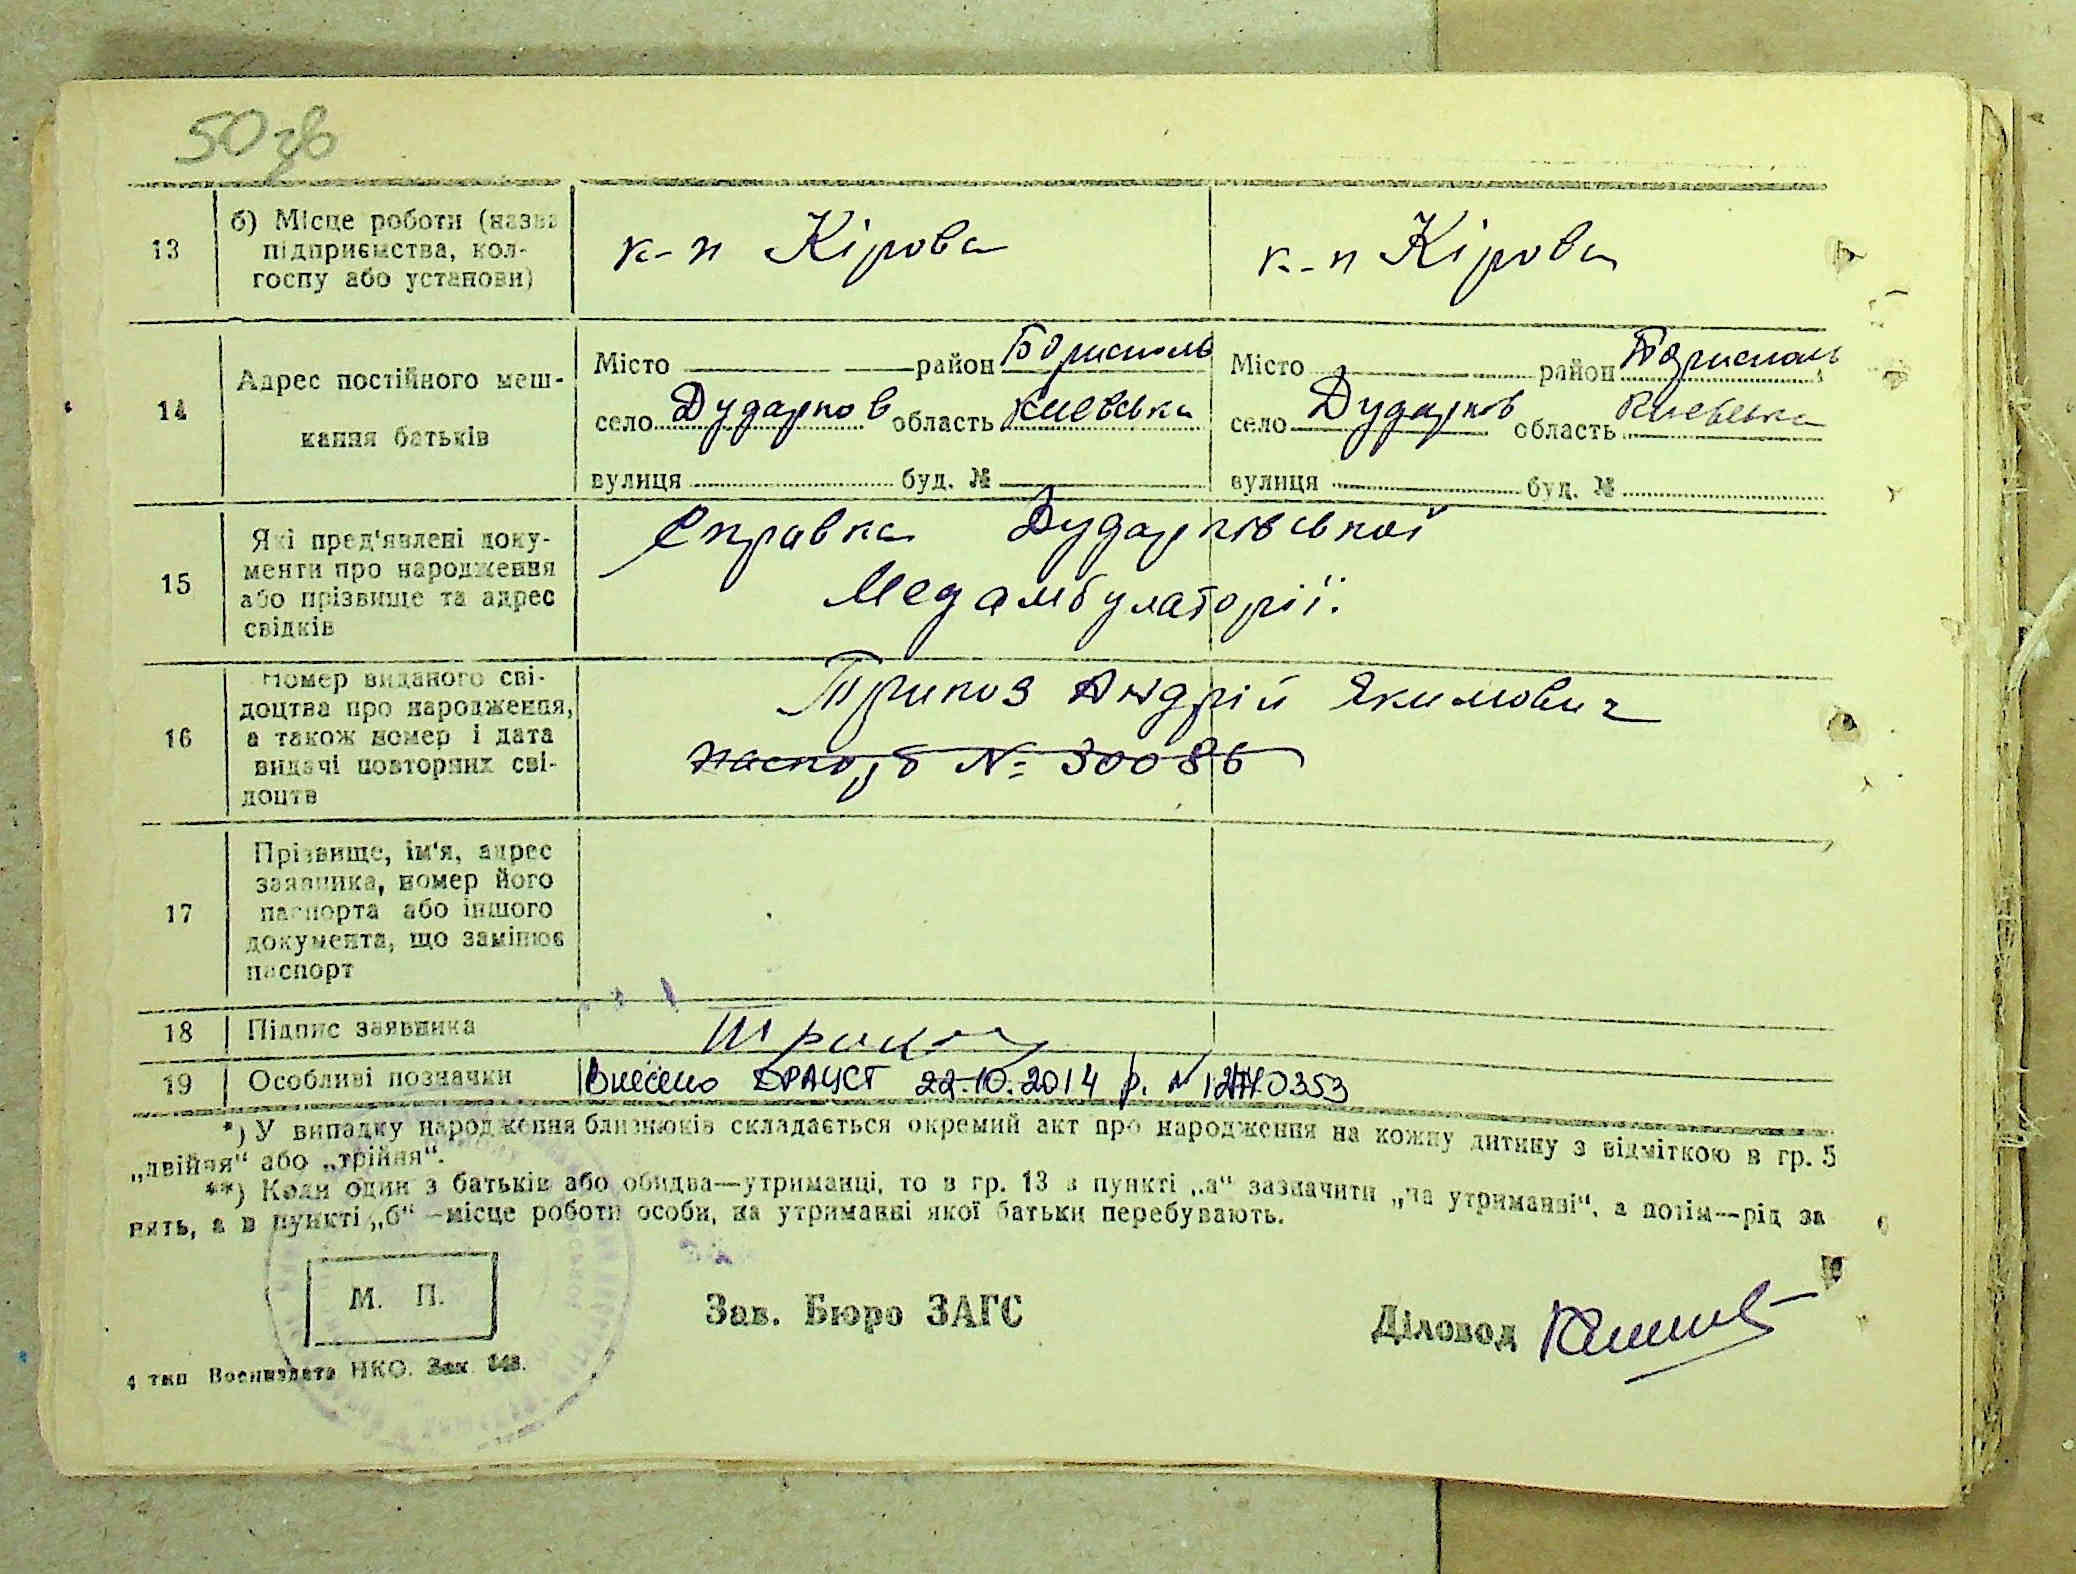 50 зв
13 б) Місце роботи (назва к-п Кірова к-п Кірова
підприємства, кол-
госпу або установи)
14 Адрес постійного меш-
кання батьків
Місто район Бориспіль Місто район Бориспіль
село Дударков область Києвська село Дударков область Києвська
вулиця буд. № вулиця буд. №
15 Які пред'явлені доку-
менти про народження
або прізвище та адрес
свідків
Справка Дударківської
Медамбулаторії.
16 Номер виданого сві-
доцтва про народження,
а також номер і дата
видачі повторних сві-
доцтв
Трикоз Андрій Якимович
паспорт № 30086
17 Прізвище, ім'я, адрес
заявника, номер його
паспорта або іншого
документа, що замінює
паспорт
18 Підпис заявника Трикоз
19 Особливі позначки Внесено ДРАЦСГ 22.10.2014 р. №
*) У випадку народження близнюків складається окремий акт про народження на кожну дитину з відміткою в гр. 5
„двійня“ або „трійня“.
**) Коли один з батьків або обидва—утриманці, то в гр. 13 в пункті „а“ зазначити „на утриманні“, а потім—рід за
нять, а в пункті „б“—місце роботи особи, на утриманні якої батьки перебувають.
М. П.
Зав. Бюро ЗАГС
Діловод
4 тип Воениздата НКО. Зак. 848.